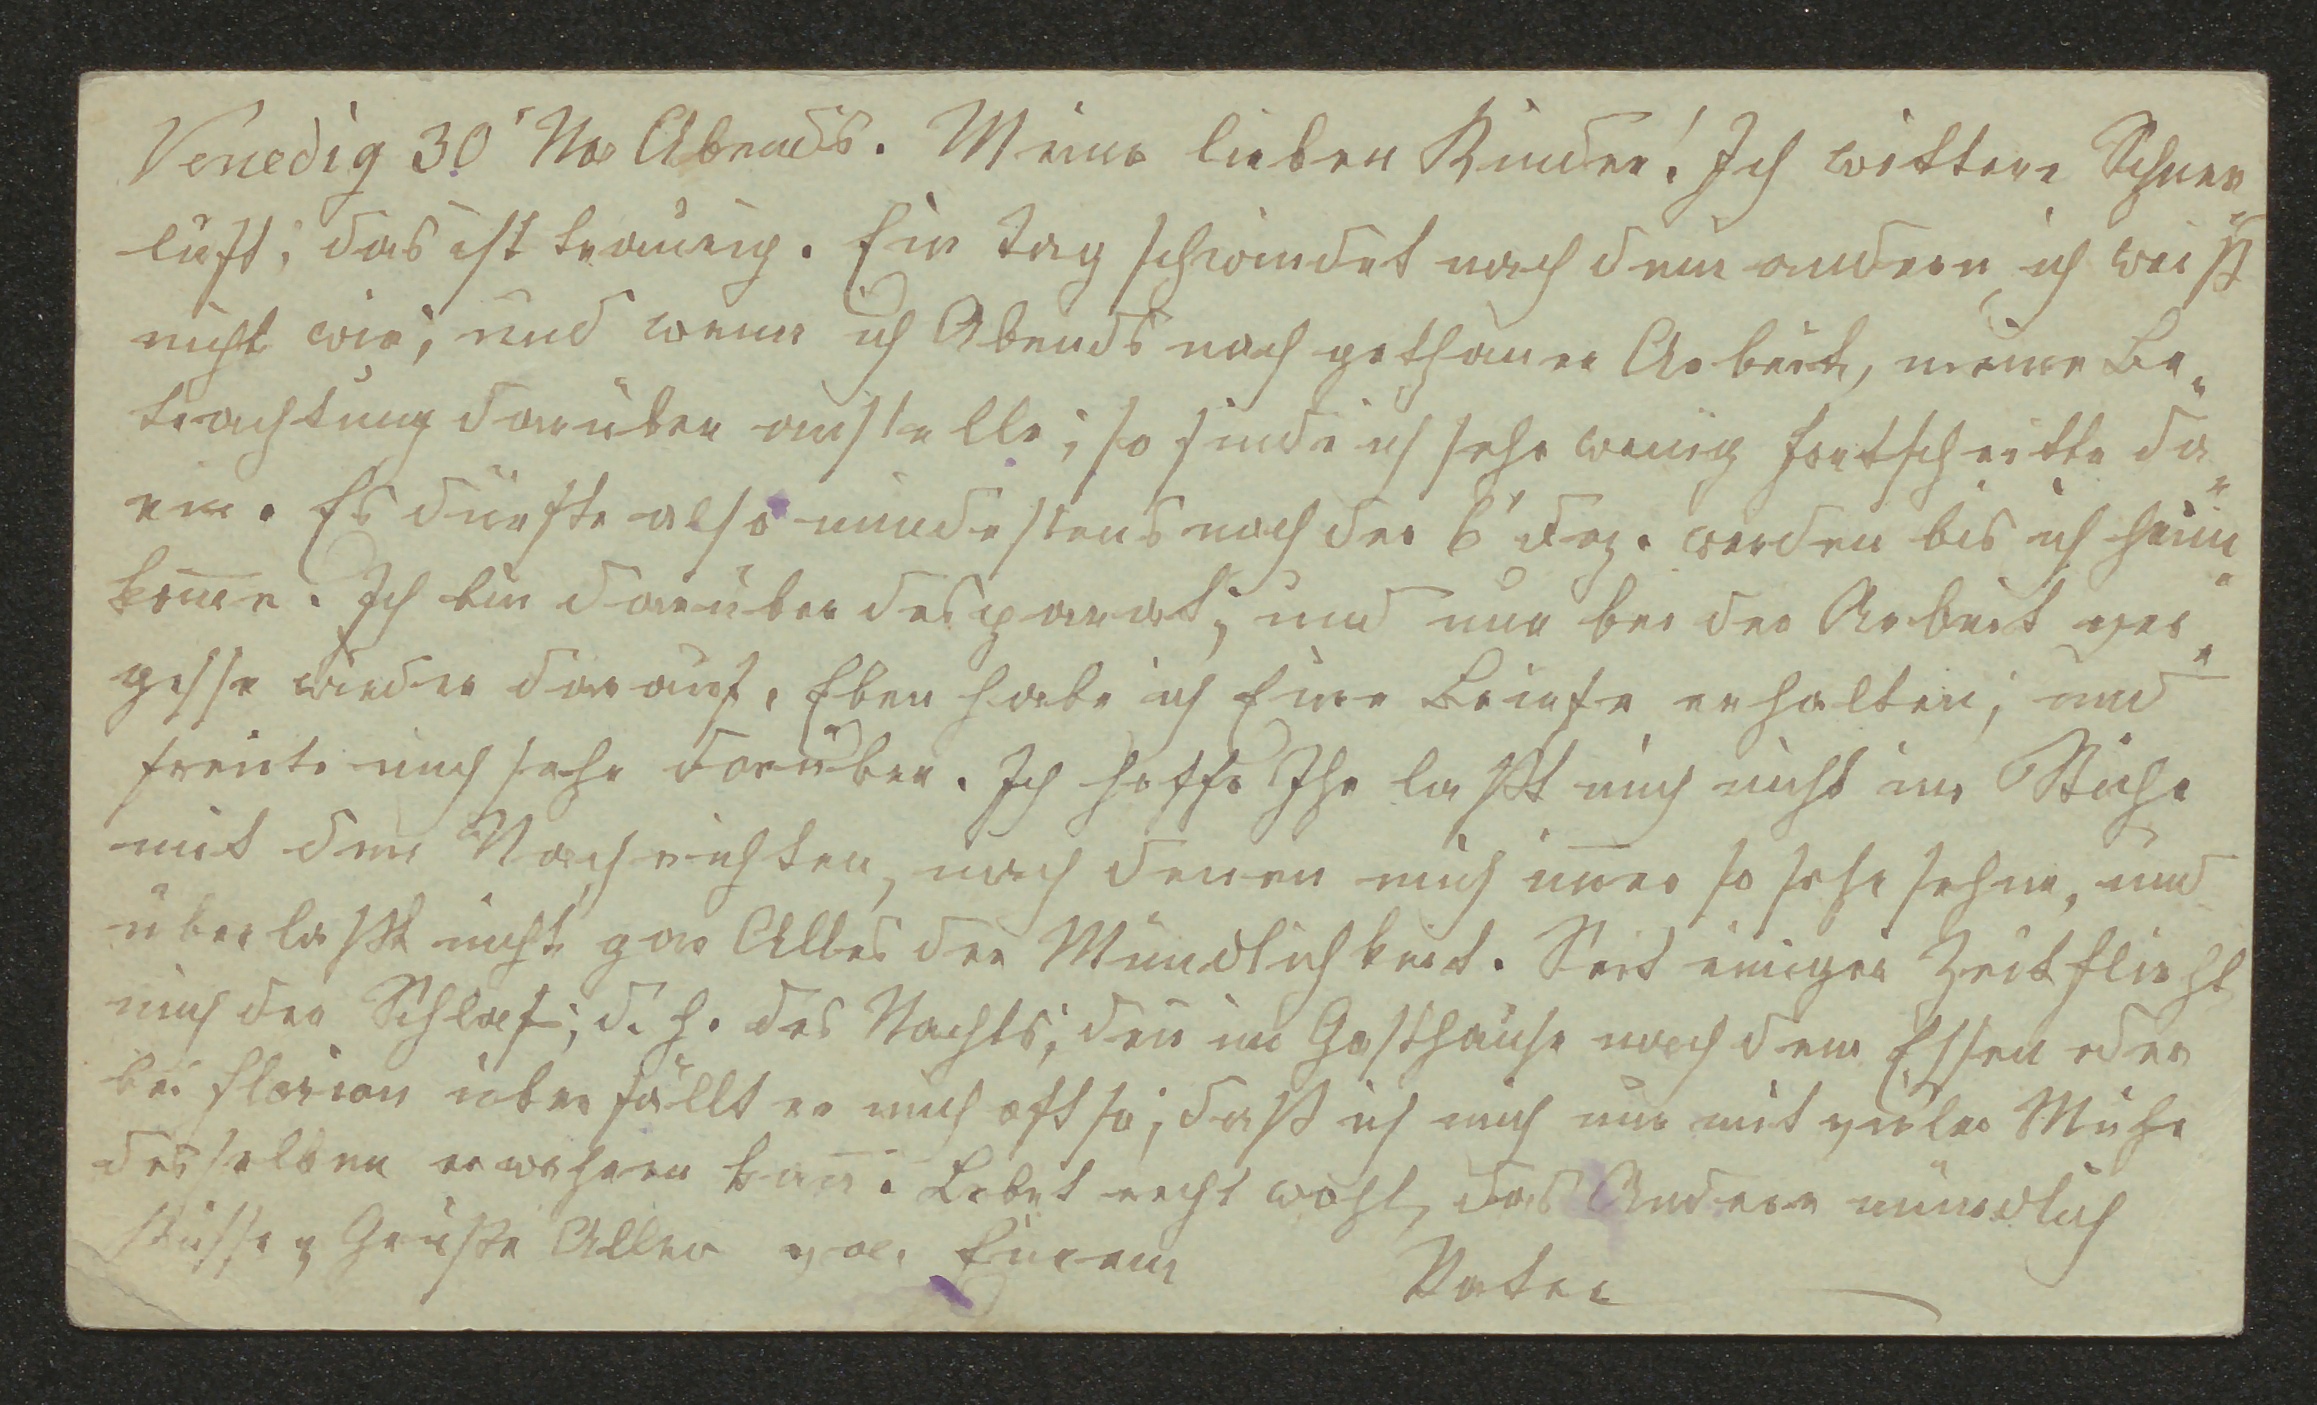 Venedig 30' Nov Abends. Meine lieben Kinder! Ich wittere Schnee
luft; das ist traurig. Ein Tag schwindet nach dem andern, ich weiß
nicht wie; und wenn ich Abends nach gethaner Arbeit, meine Be„
trachtung darüber anstelle; so finde ich sehr wenig Fortschritte da„
rin. Es dürfte also mindestens nach der 6' Dez. werden bis ich heim„
kom̅e. Ich bin darüber desparat; und nur bei der Arbeit ver„
gesse wieder darauf. Eben habe ich Eure Briefe erhalten; und
freute mich sehr darüber. Ich hoffe Ihr laßt mich nicht im Stiche
mit den Nachrichten, nach denen mich im̅er so sehr sehne, und
überlaßt nicht gar Alles der Mündlichkeit. Seit einiger Zeit flieht
mich der Schlaf; d. h. des Nachts; den̅ im Gasthause nach dem Essen oder
bei Florian überfällt er mich oft so; daß ich mich nur mit vieler Mühe
desselben erwehren kan̅. Lebet recht wohl, das Andere mündlich
Küsse u Grüße Allen von Eurem
Vater